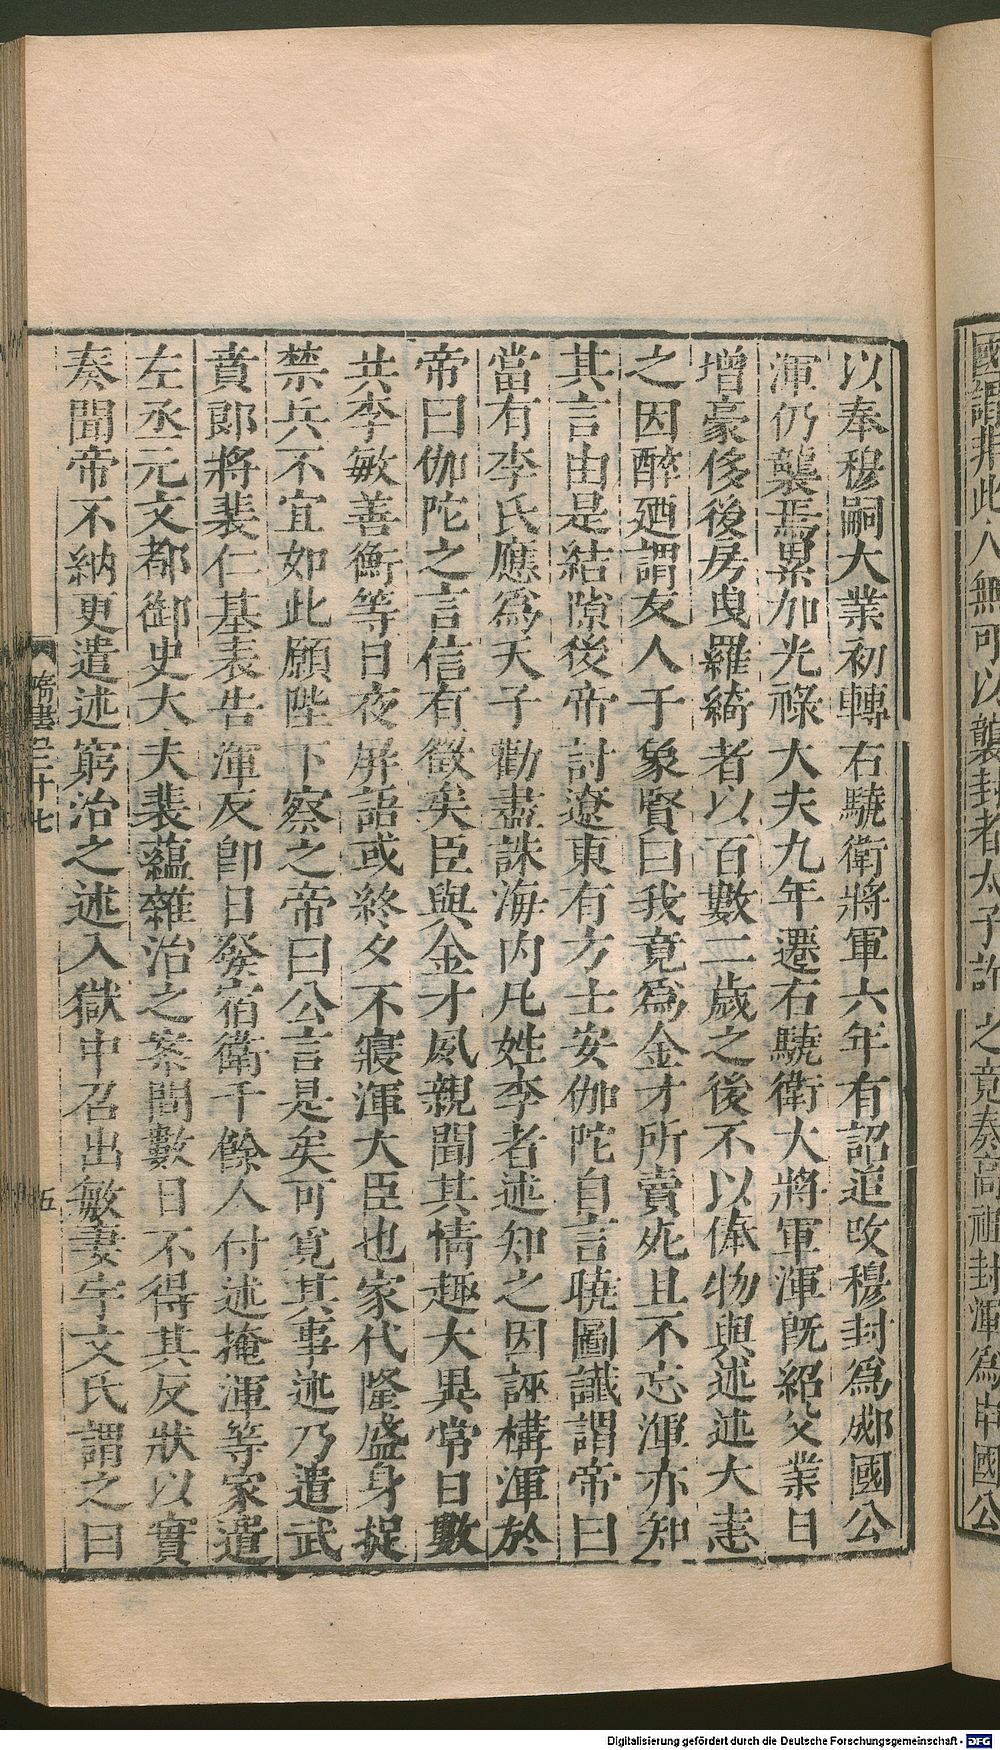 國謂非此人無可以襲封者太子許之竟奏高祖封渾爲申國公
以奉穆嗣大業初轉右驍衛將軍六年有詔追改穆封爲郕國公
渾仍襲焉累加光祿大夫九年遷右驍衛大將軍渾旣紹父業日
增豪侈後房曳羅綺者以百數二歲之後不以俸物與述述大恚
之因醉廼謂友人于象賢曰我竟爲金才所賣死且不忘渾亦知
其言由是結隙後帝討遼東有方士安伽陀自言曉圖讖謂帝曰
當有李氏應爲天子勸盡誅海內凡姓李者述知之因誣構渾於
帝曰伽陀之言信有徵矣臣與金才夙親聞其情趣大異常日數
共李敏善衡等日夜屏語或終夕不寢渾大臣也家代隆盛身捉
禁兵不宜如此願陛下察之帝曰公言是矣可覓其事述乃遣武
賁郎將裴仁基表告渾反卽日發宿衛千餘人付述掩渾等家遣
左丞元文都御史大夫裴蘊雜治之案問數日不得其反狀以實
奏聞帝不納更遣述窮治之述入獄中召出敏妻宇文氏謂之曰
隋書三十七
五
Digitalisierung gefördert durch die Deutsche Forschungsgemeinschaft - DFG